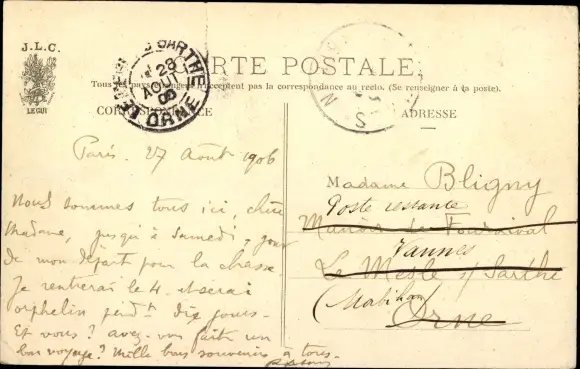 J.L.C.
CARTE POSTALE
Tous les pays étrangers n'acceptent pas la correspondance au recto. (Se renseigner à la poste).
CORRESPONDANCE
ADRESSE
SARTHE
28
AOUT
ORNE
Paris. 27 Août 1906
Nous sommes tous ici, chère
Madame, jusqu'à Samedi, jour
de mon départ pour la chasse
Je rentrerai le 4. et serai
orphelin pendt dix jours.
Et vous? avez-vous fait un
bon voyage? Mille bons souvenirs à tous.
Madame Bligny
Poste restante
Manoir de
Vannes
Le Mesle s/ Sarthe
(Morbihan
Orne